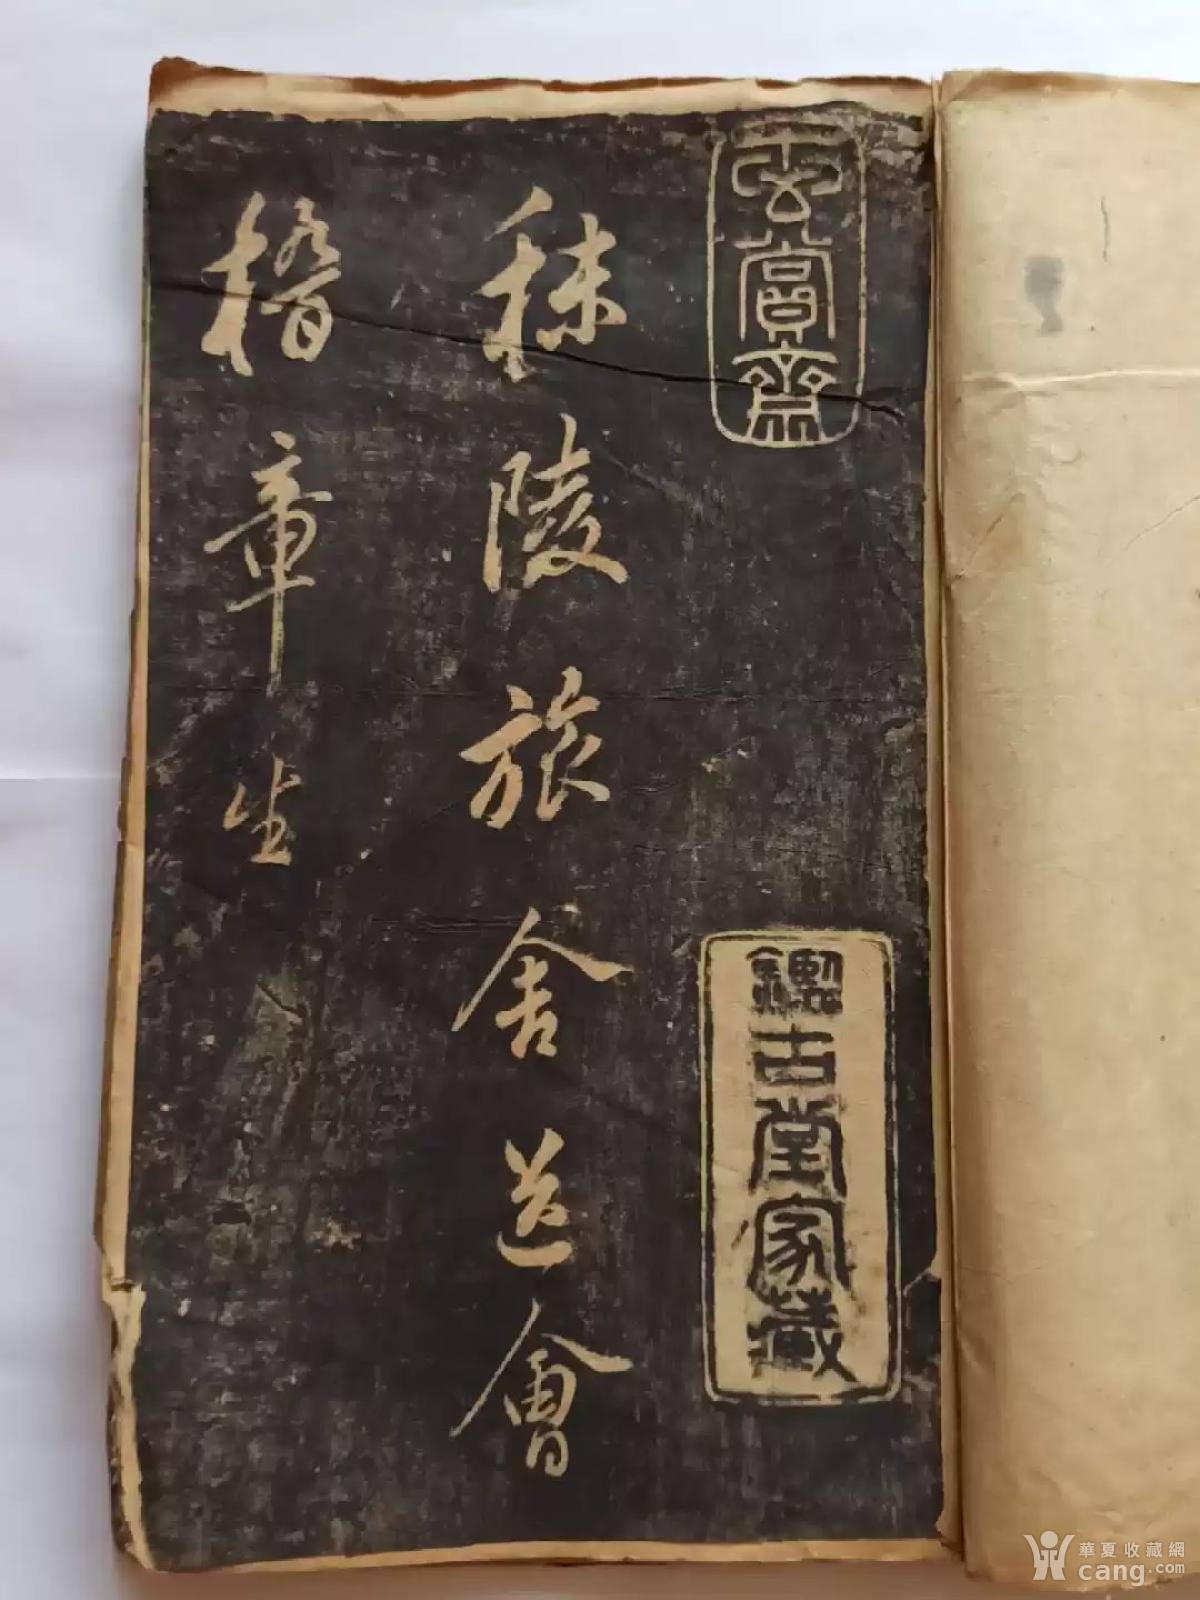 玄賞齋
鑑古堂家藏
秣陵旅舍送會
稽章生
華夏收藏網
cang.com